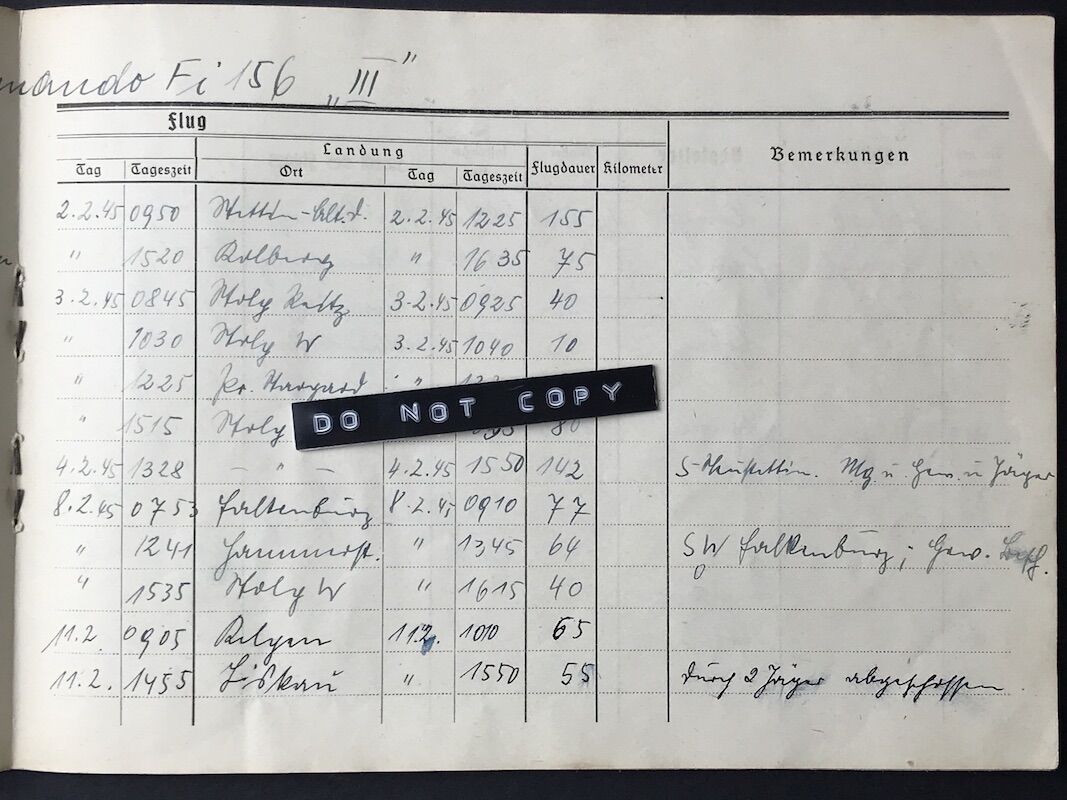 mando Fi 156 „III“
Flug
Landung
Bemerkungen
Tag Tageszeit Ort Tag Tageszeit Flugdauer Kilometer
2.2.45 0950 Stettin-Alt.d. 2.2.45 1225 155
" 1520 Kolberg " 1635 75
3.2.45 0845 Stolp Reitz 3.2.45 0925 40
" 1030 Stolp W 3.2.45 1040 10
" 1225 Pr. Stargard "
" 1515 Stolp 80
DO NOT COPY
4.2.45 1328 – " – 4.2.45 1550 142 S-Neustettin. Mg u. Gew. u Jäger
8.2.45 0753 Falkenburg 8.2.45 0910 77
" 1241 Hammerst. " 1345 64 SW Falkenburg; Gew. Besch.
" 1535 Stolp W " 1615 40
11.2. 0905 11.2. 1010 65
11.2. 1455 Liskau " 1550 55 durch 2 Jäger abgeschossen